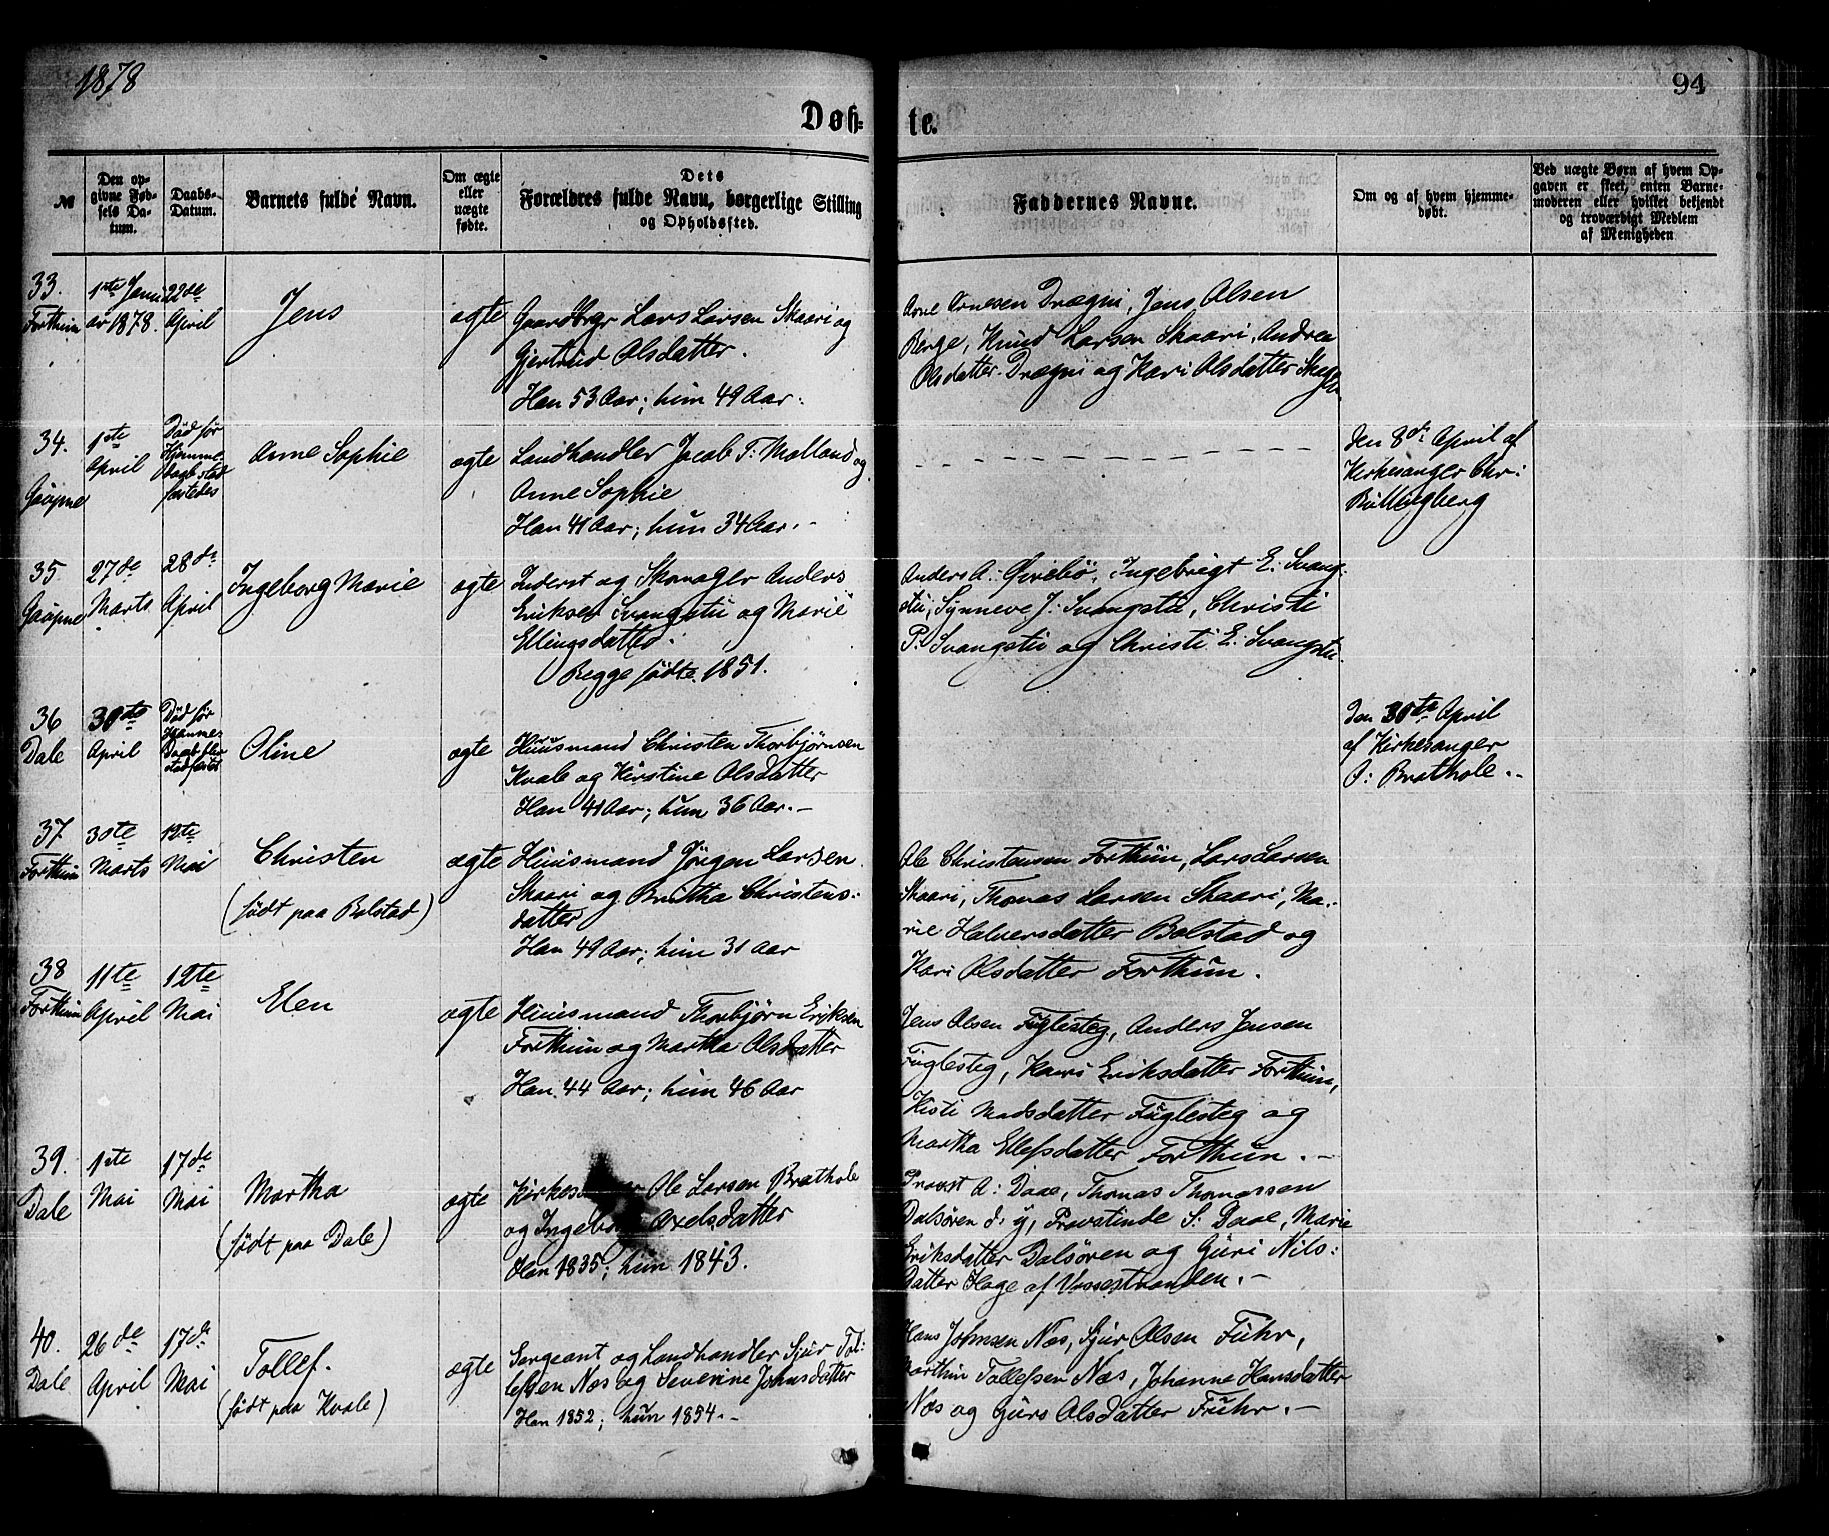 1878
94
Døb-
te.
№
Den op-
givne Fød-
sels Da-
tum.
Daabs-
Datum.
Barnets fulde Navn.
Om ægte
eller
uægte
fødte.
Dets
Forældres fulde Navn, borgerlige Stilling
og Opholdssted.
Faddernes Navne.
Om og af hvem hjemme-
døbt.
Ved uægte Børn af hvem Op-
gaven er skeet, enten Barne-
moderen eller hvilket bekjendt
og troværdigt Medlem
af Menigheden
33.
Forthun
1ste Janu
ar 1878.
22de
April
Jens
ægte
Gaardbrgr Lars Larsen Skaari og
Gjertrud Olsdatter.
Han 53 Aar; hun 49 Aar.
Arne Arnesen Drægni, Jens Olsen
Berge, Knud Larsen Skaari, Andrea
Olsdatter Drægni og Kari Olsdatter
34.
Gaupne
1ste
April
Død før
Hjemme
daab stad
fæstedes
Anne Sophie
ægte
Landhandler Jacob T: Molland og
Anne Sophie
Han 41 Aar; hun 34 Aar.-
den 8de April af
Kirkesanger Chr:
Bullingberg
35
Gaupne
27de
Marts
28de
April
Ingeborg Marie
ægte
Inderst og Skomager Anders
Eriksen Svangstu og Marie
Ellingsdatter.
Begge fødte 1851.
Anders A: Øvrebø, Ingebrigt E: Svang-
stu, Synneve J: Svangstu, Christi
P: Svangstu og Christi E: Svangstu.
36
Dale
30te
April
Død før
Hjemme-
Daab blev
stadfæstet
Oline
ægte
Huusmand Christen Thorbjørnsen
Kvale og Kirstine Olsdatter
Han 41 Aar; hun 36 Aar.-
den 30te April
af Kirkesanger
O: Brathole.-
37
Forthun
30te
Marts
12te
Mai
Christen
(født paa Bolstad)
ægte
Huusmand Jørgen Larsen
Skaari og Britha Christens-
datter
Han 49 Aar; hun 31 Aar
Ole Christensen Forthun, Lars Larsen
Skaari, Thomas Larsen Skaari, Ma-
rie Halversdatter Bolstad og
Kari Olsdatter Forthun.
38
Forthun
11te
April
12te
Mai
Elen
ægte
Huusmand Thorbjørn Eriksen
Forthun og Martha Olsdatter
Han 44 Aar; hun 46 Aar
Jens Olsen Fuglesteg, Anders Jensen
Fuglesteg, Kari Eriksdatter Forthun,
Kisti Madsdatter Fuglesteg og
Martha Ellefsdatter Forthun.-
39.
Dale
1ste
Mai
17de
Mai
Martha
(født paa Dale)
ægte
Kirkesanger Ole Larsen Brathole
og Ingeborg Axelsdatter
Han 1835; hun 1843.
Provst A: Daae, Thomas Thomassen
Dalsøren d: y, Provstinde S: Daae, Marie
Eriksdatter Dalsøren og Guri Nils-
datter Hage af Vossestranden.-
40.
Dale
26de
April
17de
Mai
Tollef.
(født paa Kvale)
ægte
Sergeant og Landhandler Sjur Tol-
lefsen Næs og Severine Johnsdatter
Han 1852; hun 1854.-
Hans Johnsen Næs, Sjur Olsen Fuhr,
Marthin Tollefsen Næs, Johanne Hansdatter
Næs og Guro Olsdatter Fuhr.-